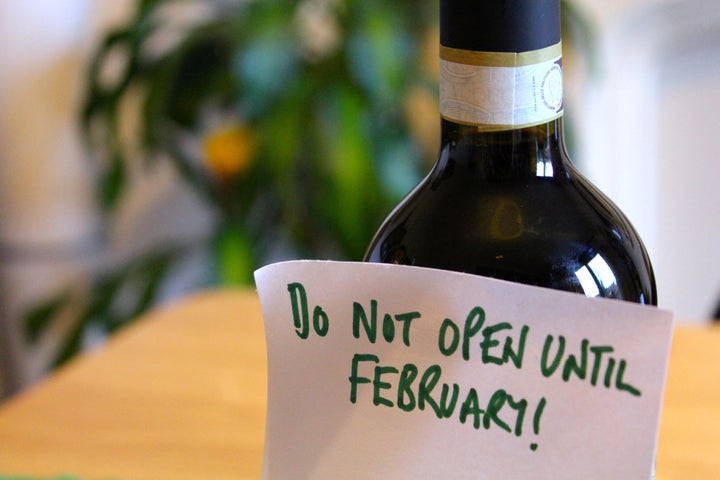 Do NOT OPEN UNTIL
FEBRUARY!